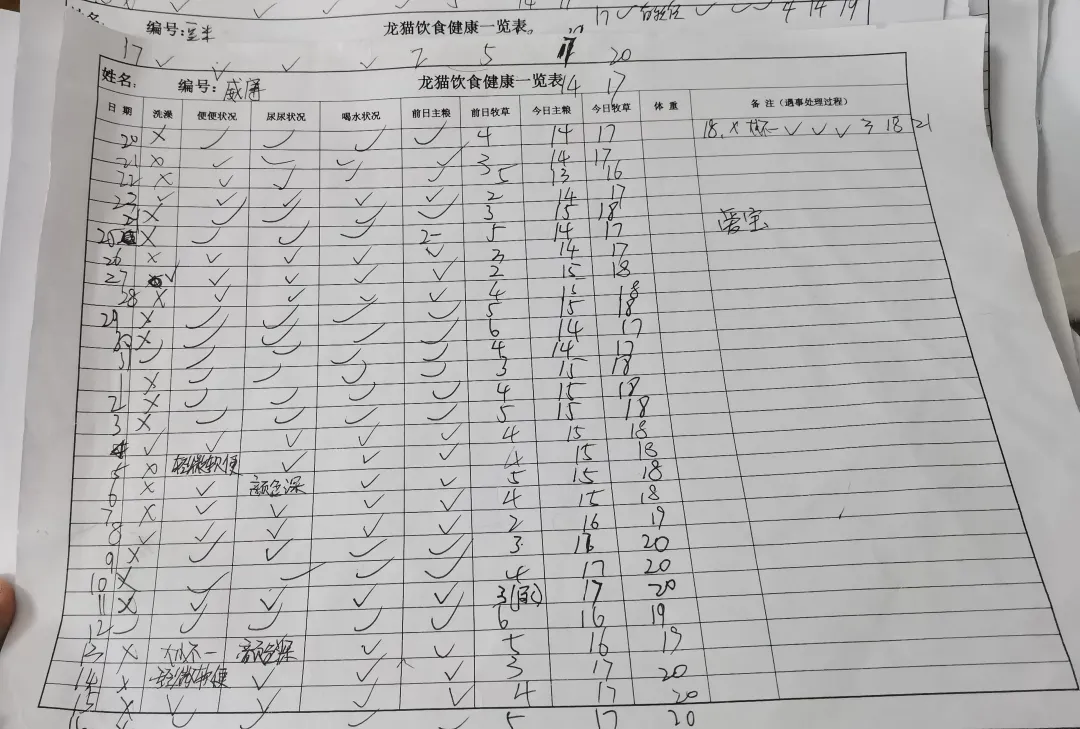 17 ✓ ✓ ✓ 4 14 19
编号:豆米 龙猫饮食健康一览表。
17 ✓ ✓ ✓ ✓ 2 5 17 20
姓名: 编号:威廉 龙猫饮食健康一览表 14 17
日期 洗澡 便便状况 尿尿状况 喝水状况 前日主粮 前日牧草 今日主粮 今日牧草 体重 备注(遇事处理过程)
20 × ✓ ✓ ✓ ✓ 4 14 17 18. × ✓ ✓ ✓ 3 18 21
21 × ✓ ✓ ✓ ✓ 3 14 17
22 × ✓ ✓ ✓ ✓ 5 13 16
23 ✓ ✓ ✓ ✓ ✓ 2 14 17
24 × ✓ ✓ ✓ ✓ 3 15 18 爱宝
25 × ✓ ✓ ✓ 2- 5 14 17
26 × ✓ ✓ ✓ ✓ 3 14 17
27 ✓ ✓ ✓ ✓ ✓ 2 15 18
28 × ✓ ✓ ✓ ✓ 4 15 18
29 × ✓ ✓ ✓ ✓ 5 15 18
30 × ✓ ✓ ✓ ✓ 6 14 17
31 ✓ ✓ ✓ ✓ ✓ 4 14 17
1 × ✓ ✓ ✓ ✓ 3 15 18
2 × ✓ ✓ ✓ ✓ 4 15 18
3 × ✓ ✓ ✓ ✓ 5 15 18
4 ✓ ✓ ✓ ✓ ✓ 4 15 18
5 × 轻微软便 ✓ ✓ ✓ 4 15 18
6 × ✓ 颜色深 ✓ ✓ 5 15 18
7 × ✓ ✓ ✓ ✓ 4 15 18
8 ✓ ✓ ✓ ✓ ✓ 2 16 19
9 × ✓ ✓ ✓ ✓ 3 16 20
10 × ✓ ✓ ✓ ✓ 4 17 20
11 × ✓ ✓ ✓ ✓ 3 17 20
12 ✓ ✓ ✓ ✓ ✓ 6 16 19
13 × 大小不一 颜色深 ✓ ✓ 5 16 19
14 × 轻微软便 ✓ ✓ ✓ 3 17 20
15 × ✓ ✓ ✓ ✓ 4 17 20
✓ ✓ ✓ ✓ 5 17 20